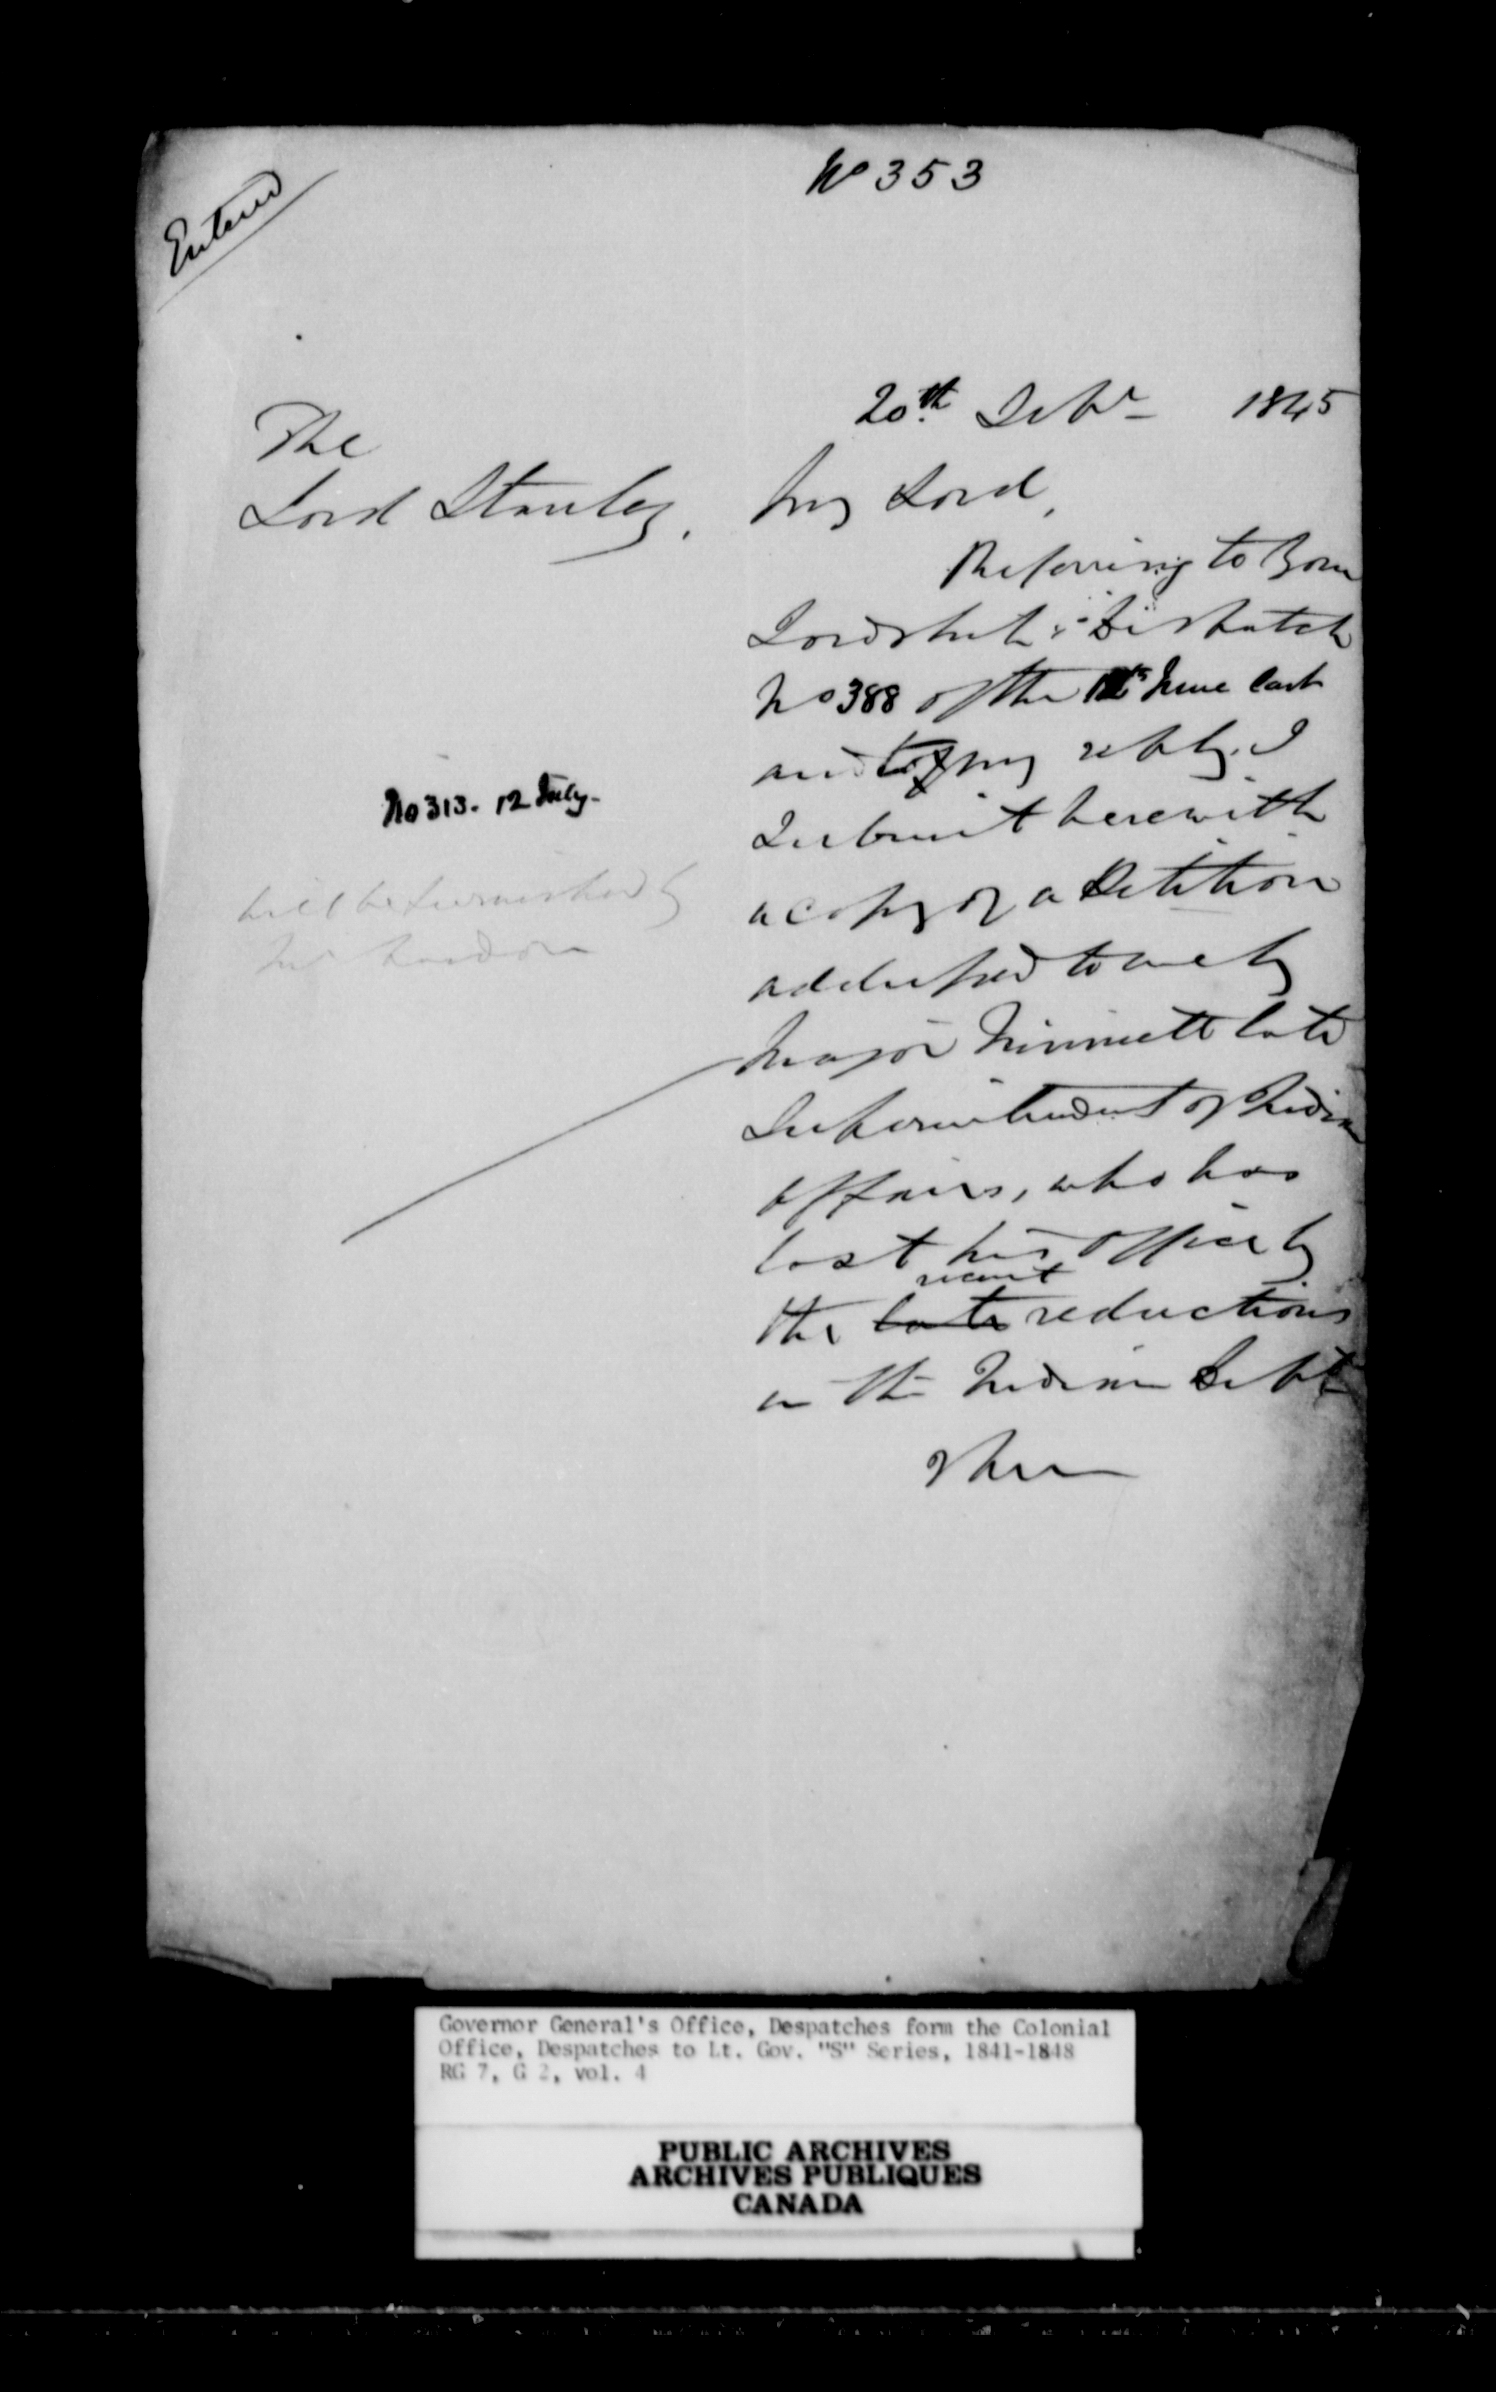 No 353
Entered
20th Septr 1845
The
Lord Stanley,
My Lord,
Referring to Your
Lordship's Dispatch
No 388 of the June last
and to my reply, I
No 313. 12 July.
Submit herewith
a copy of a Petition
will be furnished by
Mr
addressed to me by
Major Winniett late
Superintendent of Indian
Affairs, who has
lost his office by
recent
the late reductions
in the Indian Dept
I have
Governor General's Office, Despatches form the Colonial
Office, Despatches to Lt. Gov. "S" Series, 1841-1848
RG 7, G 2, vol. 4
PUBLIC ARCHIVES
ARCHIVES PUBLIQUES
CANADA